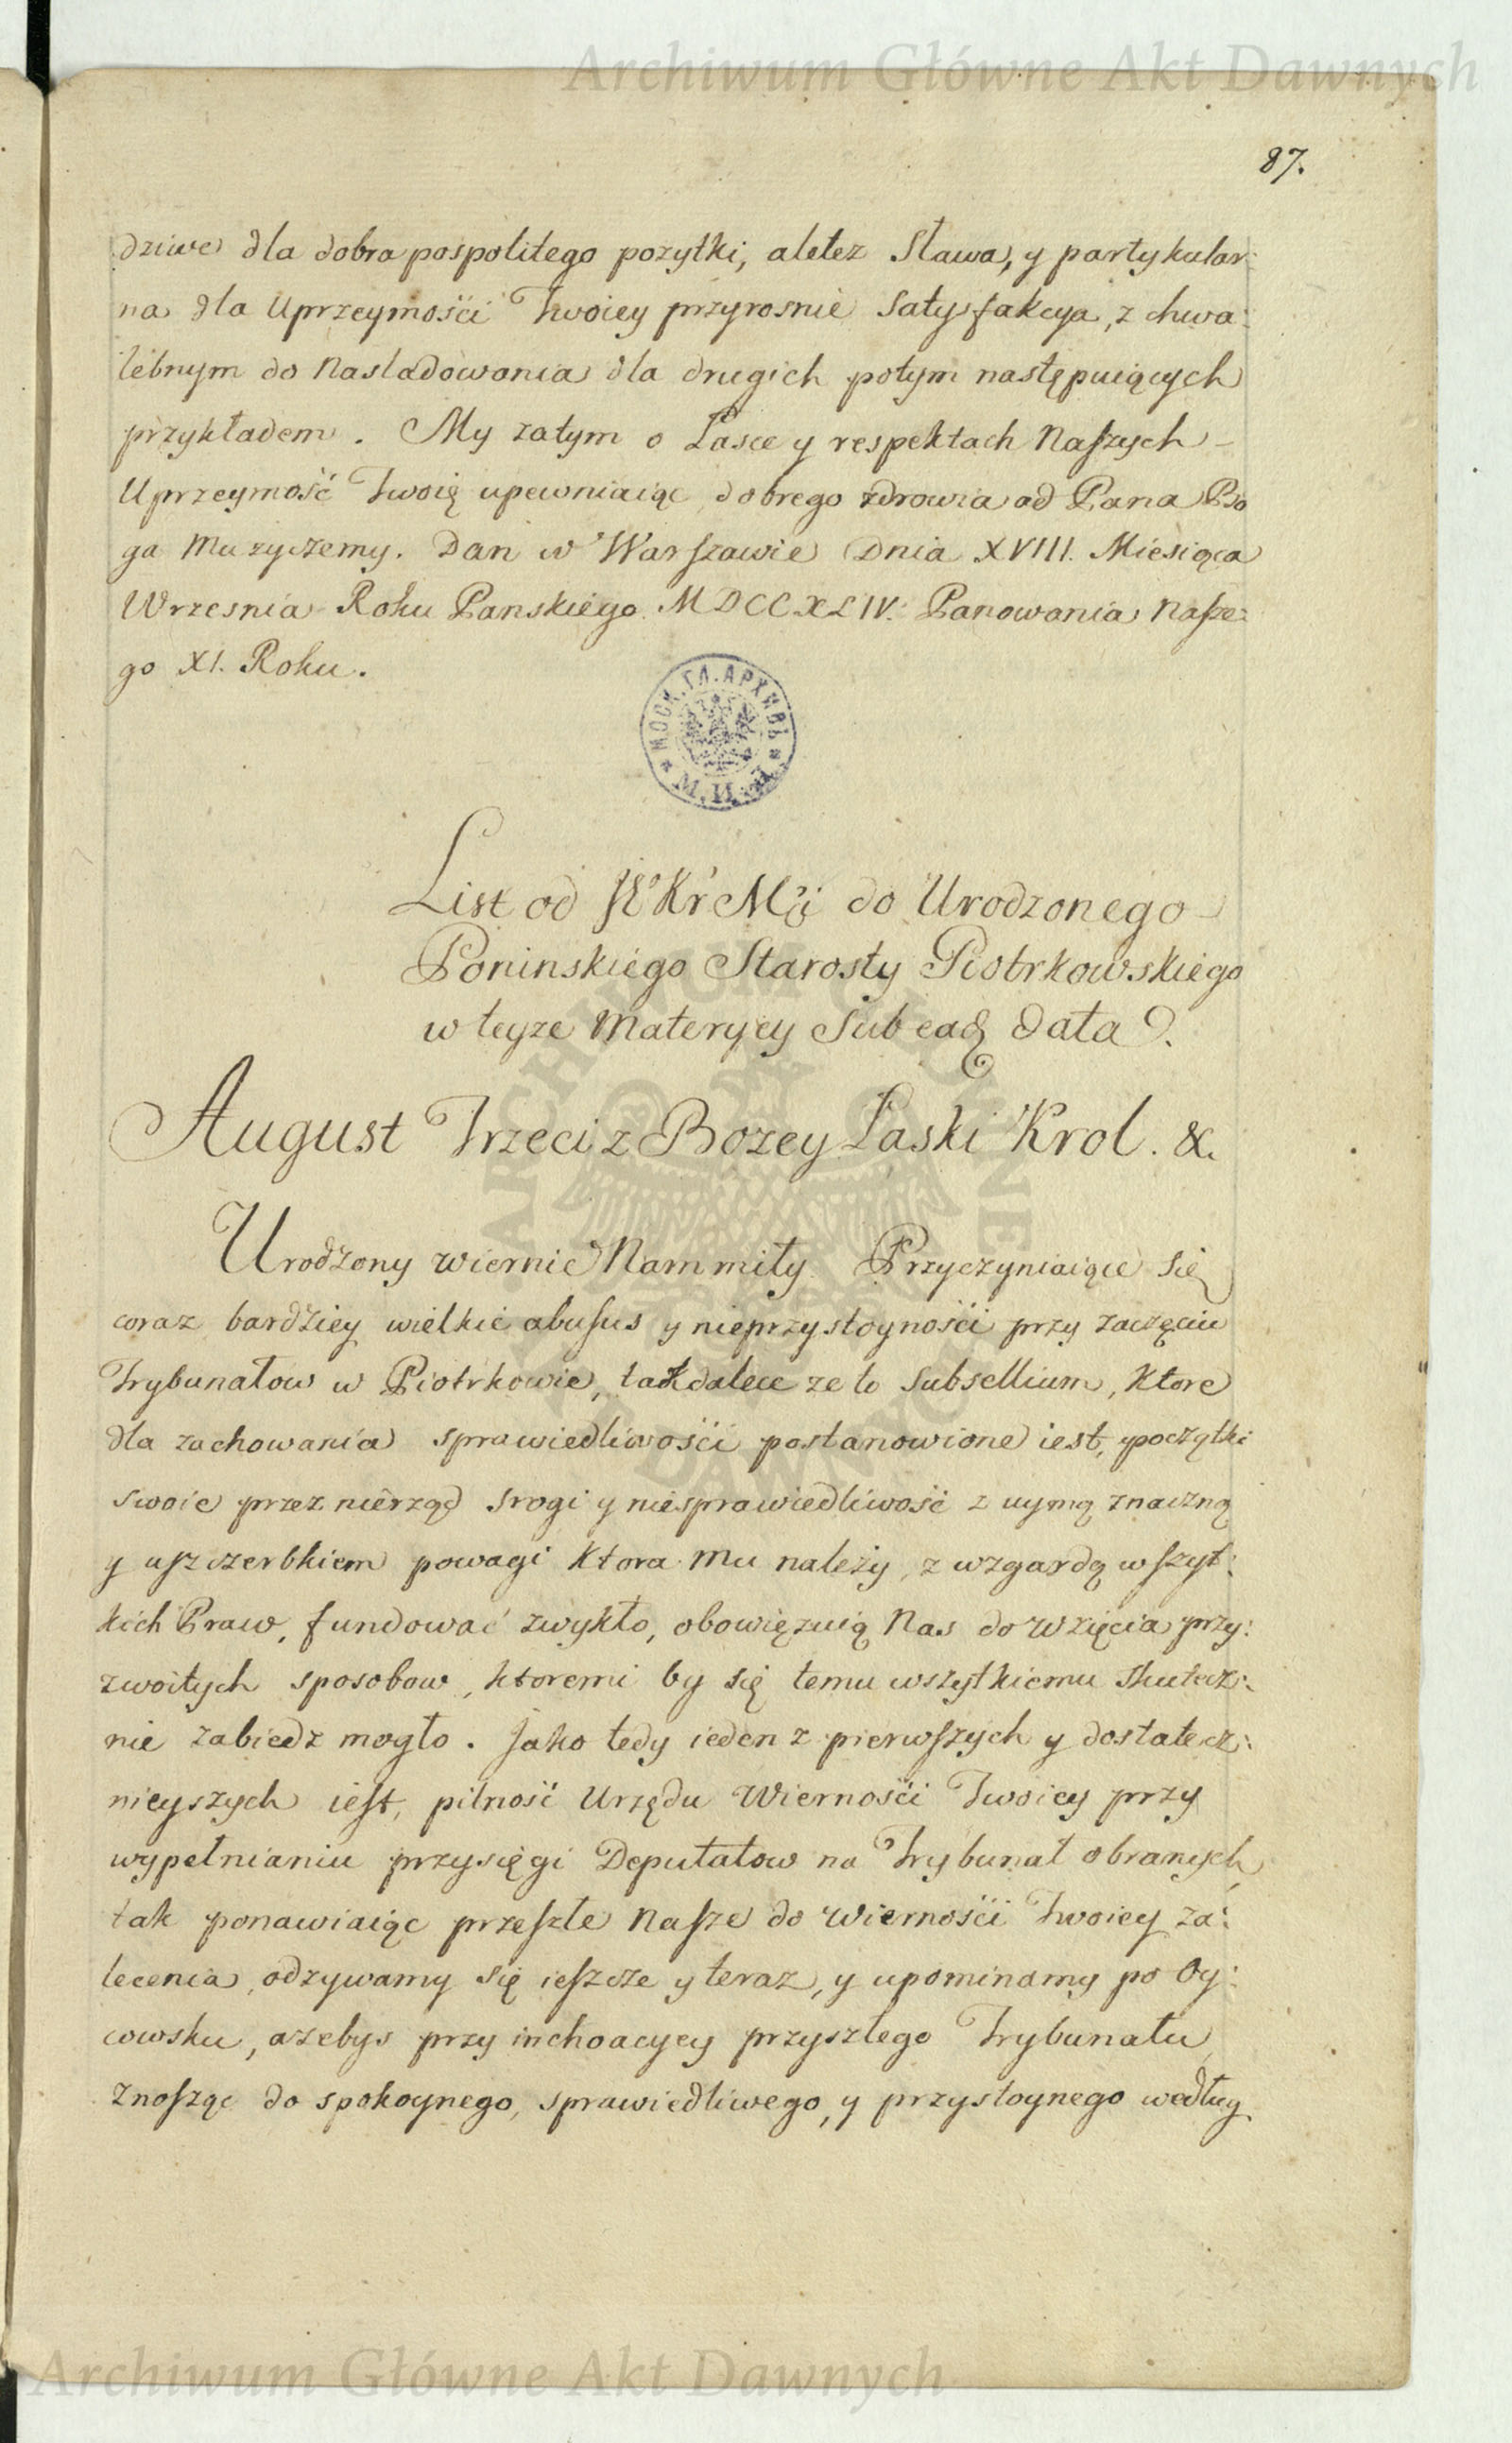 Archiwum Główne Akt Dawnych
87.
dziwe dla dobra pospolitego pozytki, aletez Sława, y partykular:
na dla Uprzeymości Twoiey przyrosnie Satysfakcya, z chwa:
lebnym do Nasladowania dla drugich potym następuiących
przykładem. My zatym o Łasce y respektach Naszych
Uprzeymość Twoię upewniaiąc dobrego zdrowia od Pana Bo
ga Mu zyczemy. Dan w Warszawie Dnia XVIII. Miesiąca
Wrzesnia Roku Panskiego MDCCXLIV. Panowania Nasze:
go XI. Roku.
МОСК. ГЛ. АРХИВЪ
М. И. Д.
List od JKr Mći do Urodzonego
Poninskiego Starosty Piotrkowskiego
w teyze Materycy Sub ead. data.
August Trzeci z Bozey Łaski Krol. &.
Urodzony wiernie Nam miły. Przyczyniaiące się
coraz bardziey wielkie abusus y nieprzystoyności przy zaczęciu
Trybunałow w Piotrkowie, tak dalece ze to Subsellium, ktore
dla zachowania sprawiedliwości postanowione iest, początki
swoie przez nierząd srogi y niesprawiedliwość z uymą znaczną
y uszczerbkiem powagi ktora mu należy, z wzgardą wszyt:
kich Praw, fundować zwykło, obowięzuią Nas do Wzięcia przy:
zwoitych sposobow, ktoremi by się temu wszytkiemu skutecz:
nie zabiedz mogło. Jako tedy ieden z pierwszych y dostatecz:
nieyszych iest, pilność Urzędu Wierności Twoiey przy
wypełnianiu przysięgi Deputatow na Trybunał obranych,
tak ponawiaiąc przeszłe Nasze do Wierności Twoiey za:
lecenia, odzywamy się ieszcze y teraz, y upominamy po Oy:
cowsku, azebys przy inchoacyey przyszłego Trybunału
znosząc do spokoynego, sprawiedliwego, y przystoynego według
Archiwum Główne Akt Dawnych